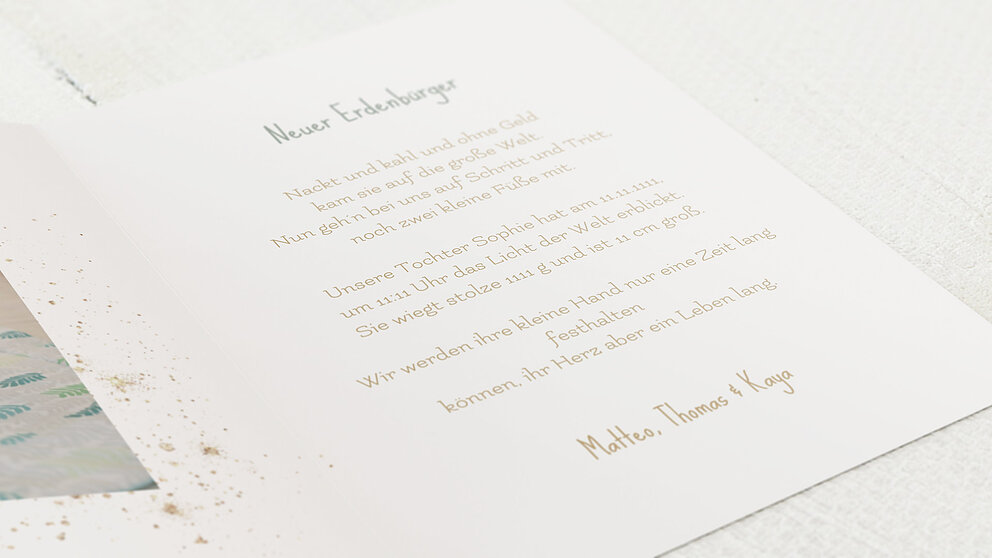 Neuer Erdenbürger
Nackt und kahl und ohne Geld
kam sie auf die große Welt.
Nun geh'n bei uns auf Schritt und Tritt,
noch zwei kleine Füße mit.
Unsere Tochter Sophie hat am 11.11.1111,
um 11:11 Uhr das Licht der Welt erblickt.
Sie wiegt stolze 1111 g und ist 11 cm groß.
Wir werden ihre kleine Hand nur eine Zeit lang
festhalten
können, ihr Herz aber ein Leben lang.
Matteo, Thomas & Kaya